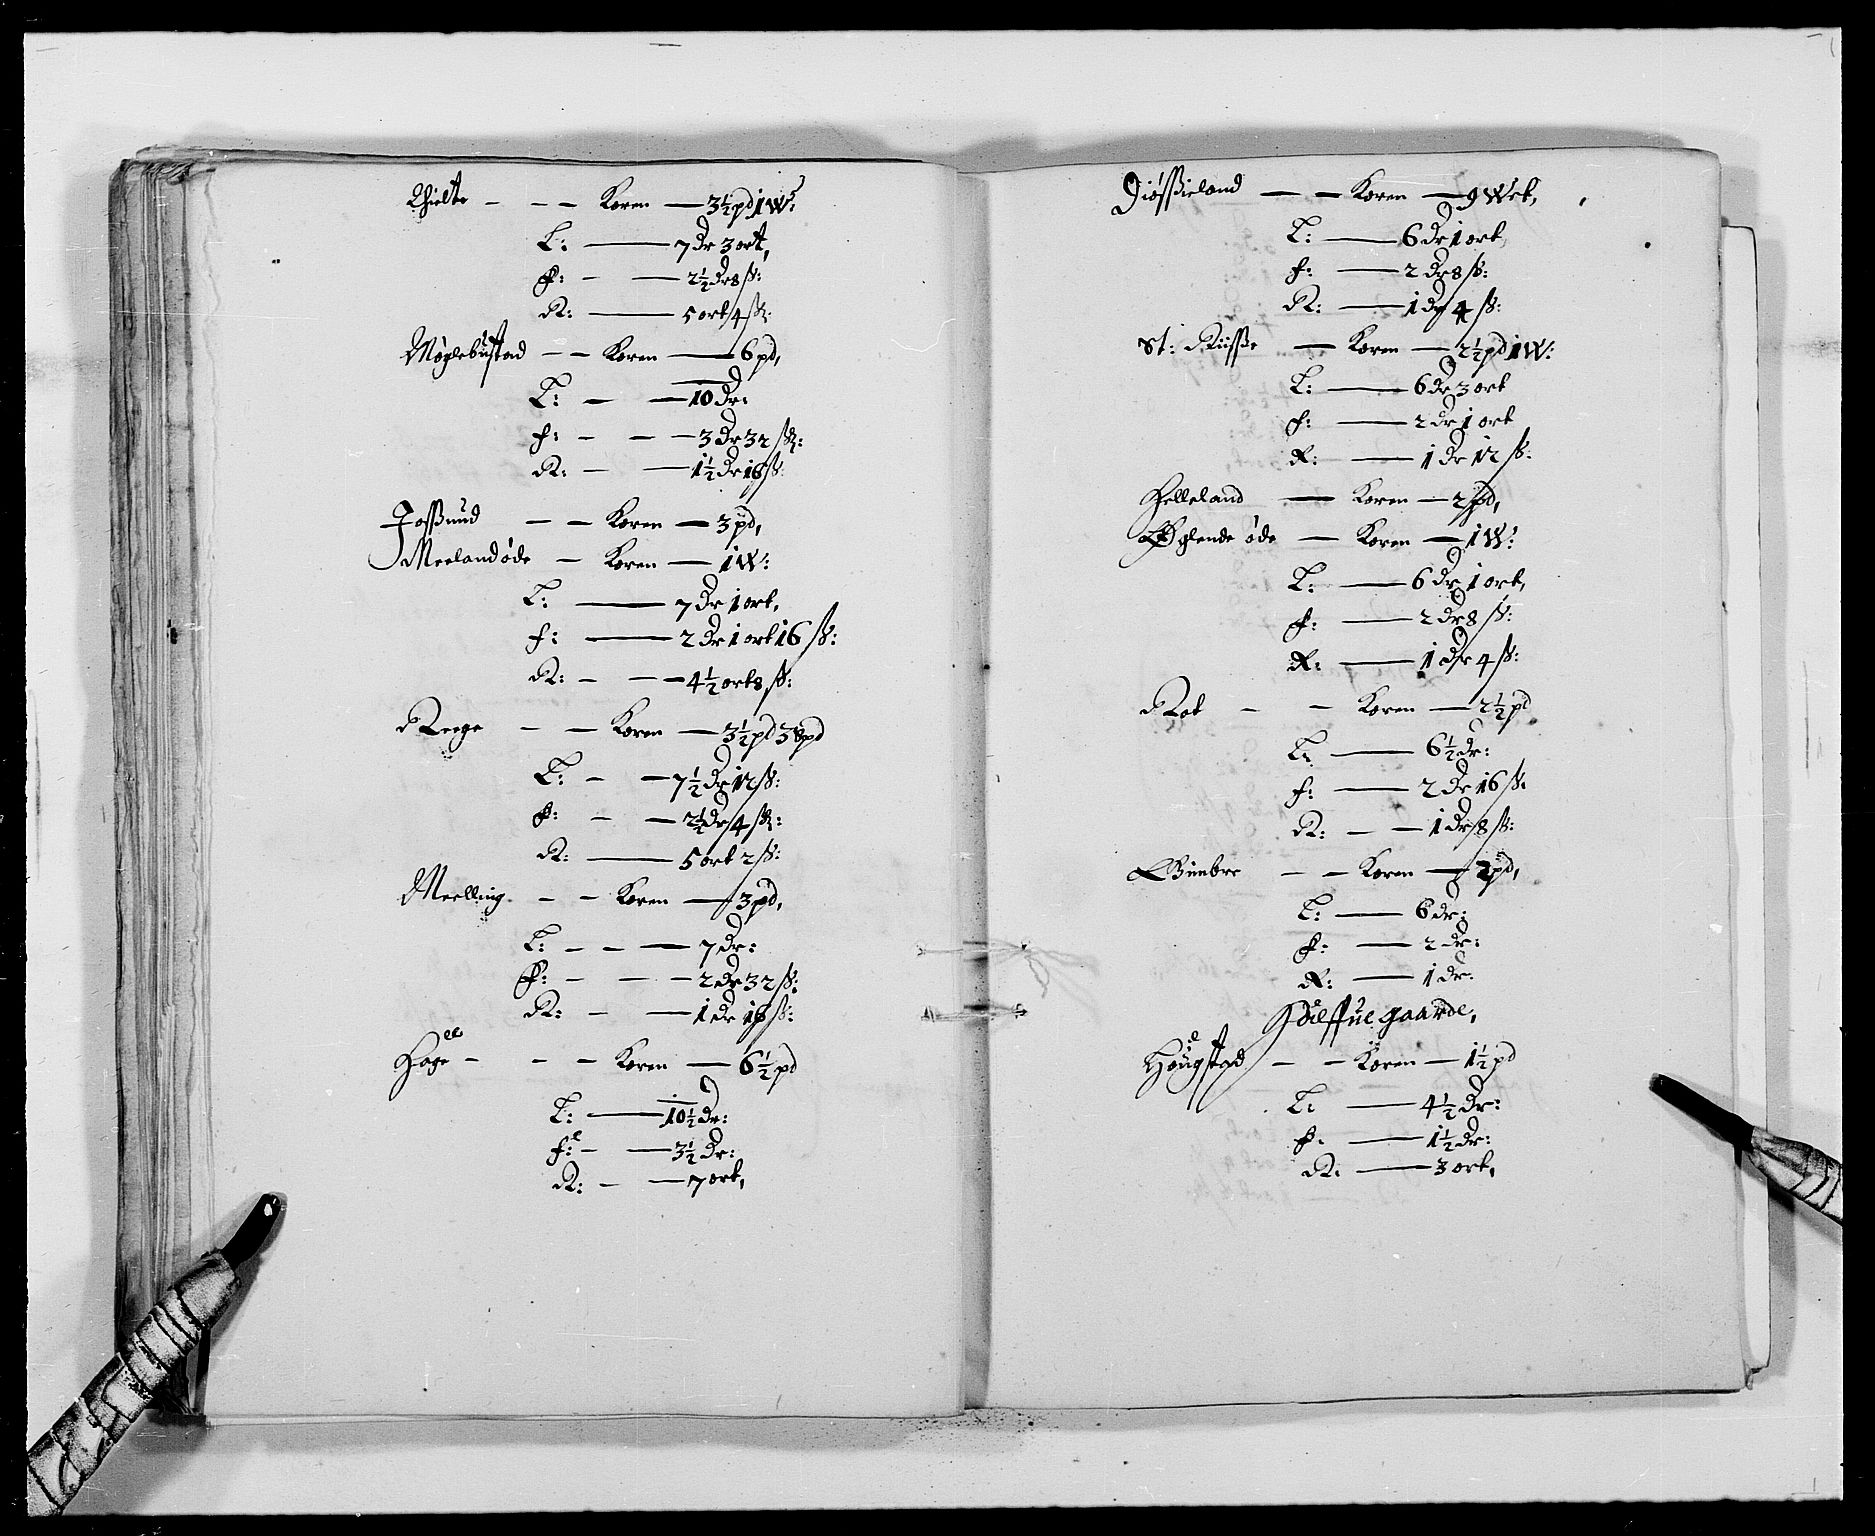 Koren — 3½ pd 1 W:
L: — 7 Dr 3 ort,
f: — 2½ Dr 8 ß:
R: — 5 ort 4 ß:
Møglebustad — Koren — 6 pd,
L: — 10 Dr:
f: — 3 Dr 32 ß:
R: — 1½ Dr 16 ß:
Joßund — Koren — 3 pd,
Meeland øde — Koren — 1 W:
L: — 7 Dr 1 ort,
f: — 2 Dr 1 ort 16 ß:
R: — 4½ ort 8 ß:
Reege — Koren — 3½ pd 38 pd
L: — 7½ Dr 12 ß:
f: — 2½ Dr 4 ß:
R: — 5 ort 2 ß:
Meelling — Koren — 3 pd,
L: — 7 Dr:
f: — 2 Dr 32 ß:
R: — 1 Dr 16 ß:
Koren — 6½ pd
L: — 10½ Dr:
f: — 3½ Dr:
R: — 7 ort,
Diøßieland — Koren — 9 Wet,
L: — 6 Dr 1 ort
f: — 2 Dr 8 ß:
R: — 1 Dr 4 ß:
St: Riisße — Koren — 2½ pd 1 W:
L: — 6 Dr 3 ort
f: — 2 Dr 1 ort
R: — 1 Dr 12 ß:
Helleland — Koren — 2 pd,
Øglende øde — Koren — 1 W:
L: — 6 Dr 1 ort,
f: — 2 Dr 8 ß:
R: — 1 Dr 4 ß:
Rot — Koren — 2½ pd
L: — 6½ Dr:
f: — 2 Dr 16 ß:
R: — 1 Dr 8 ß:
Koren — 2 pd,
L: — 6 Dr:
f: — 2 Dr:
R: — 1 Dr:
gaarde,
Hougstad — Koren — 1½ pd
L: — 4½ Dr:
f: — 1½ Dr:
R: — 3 ort,